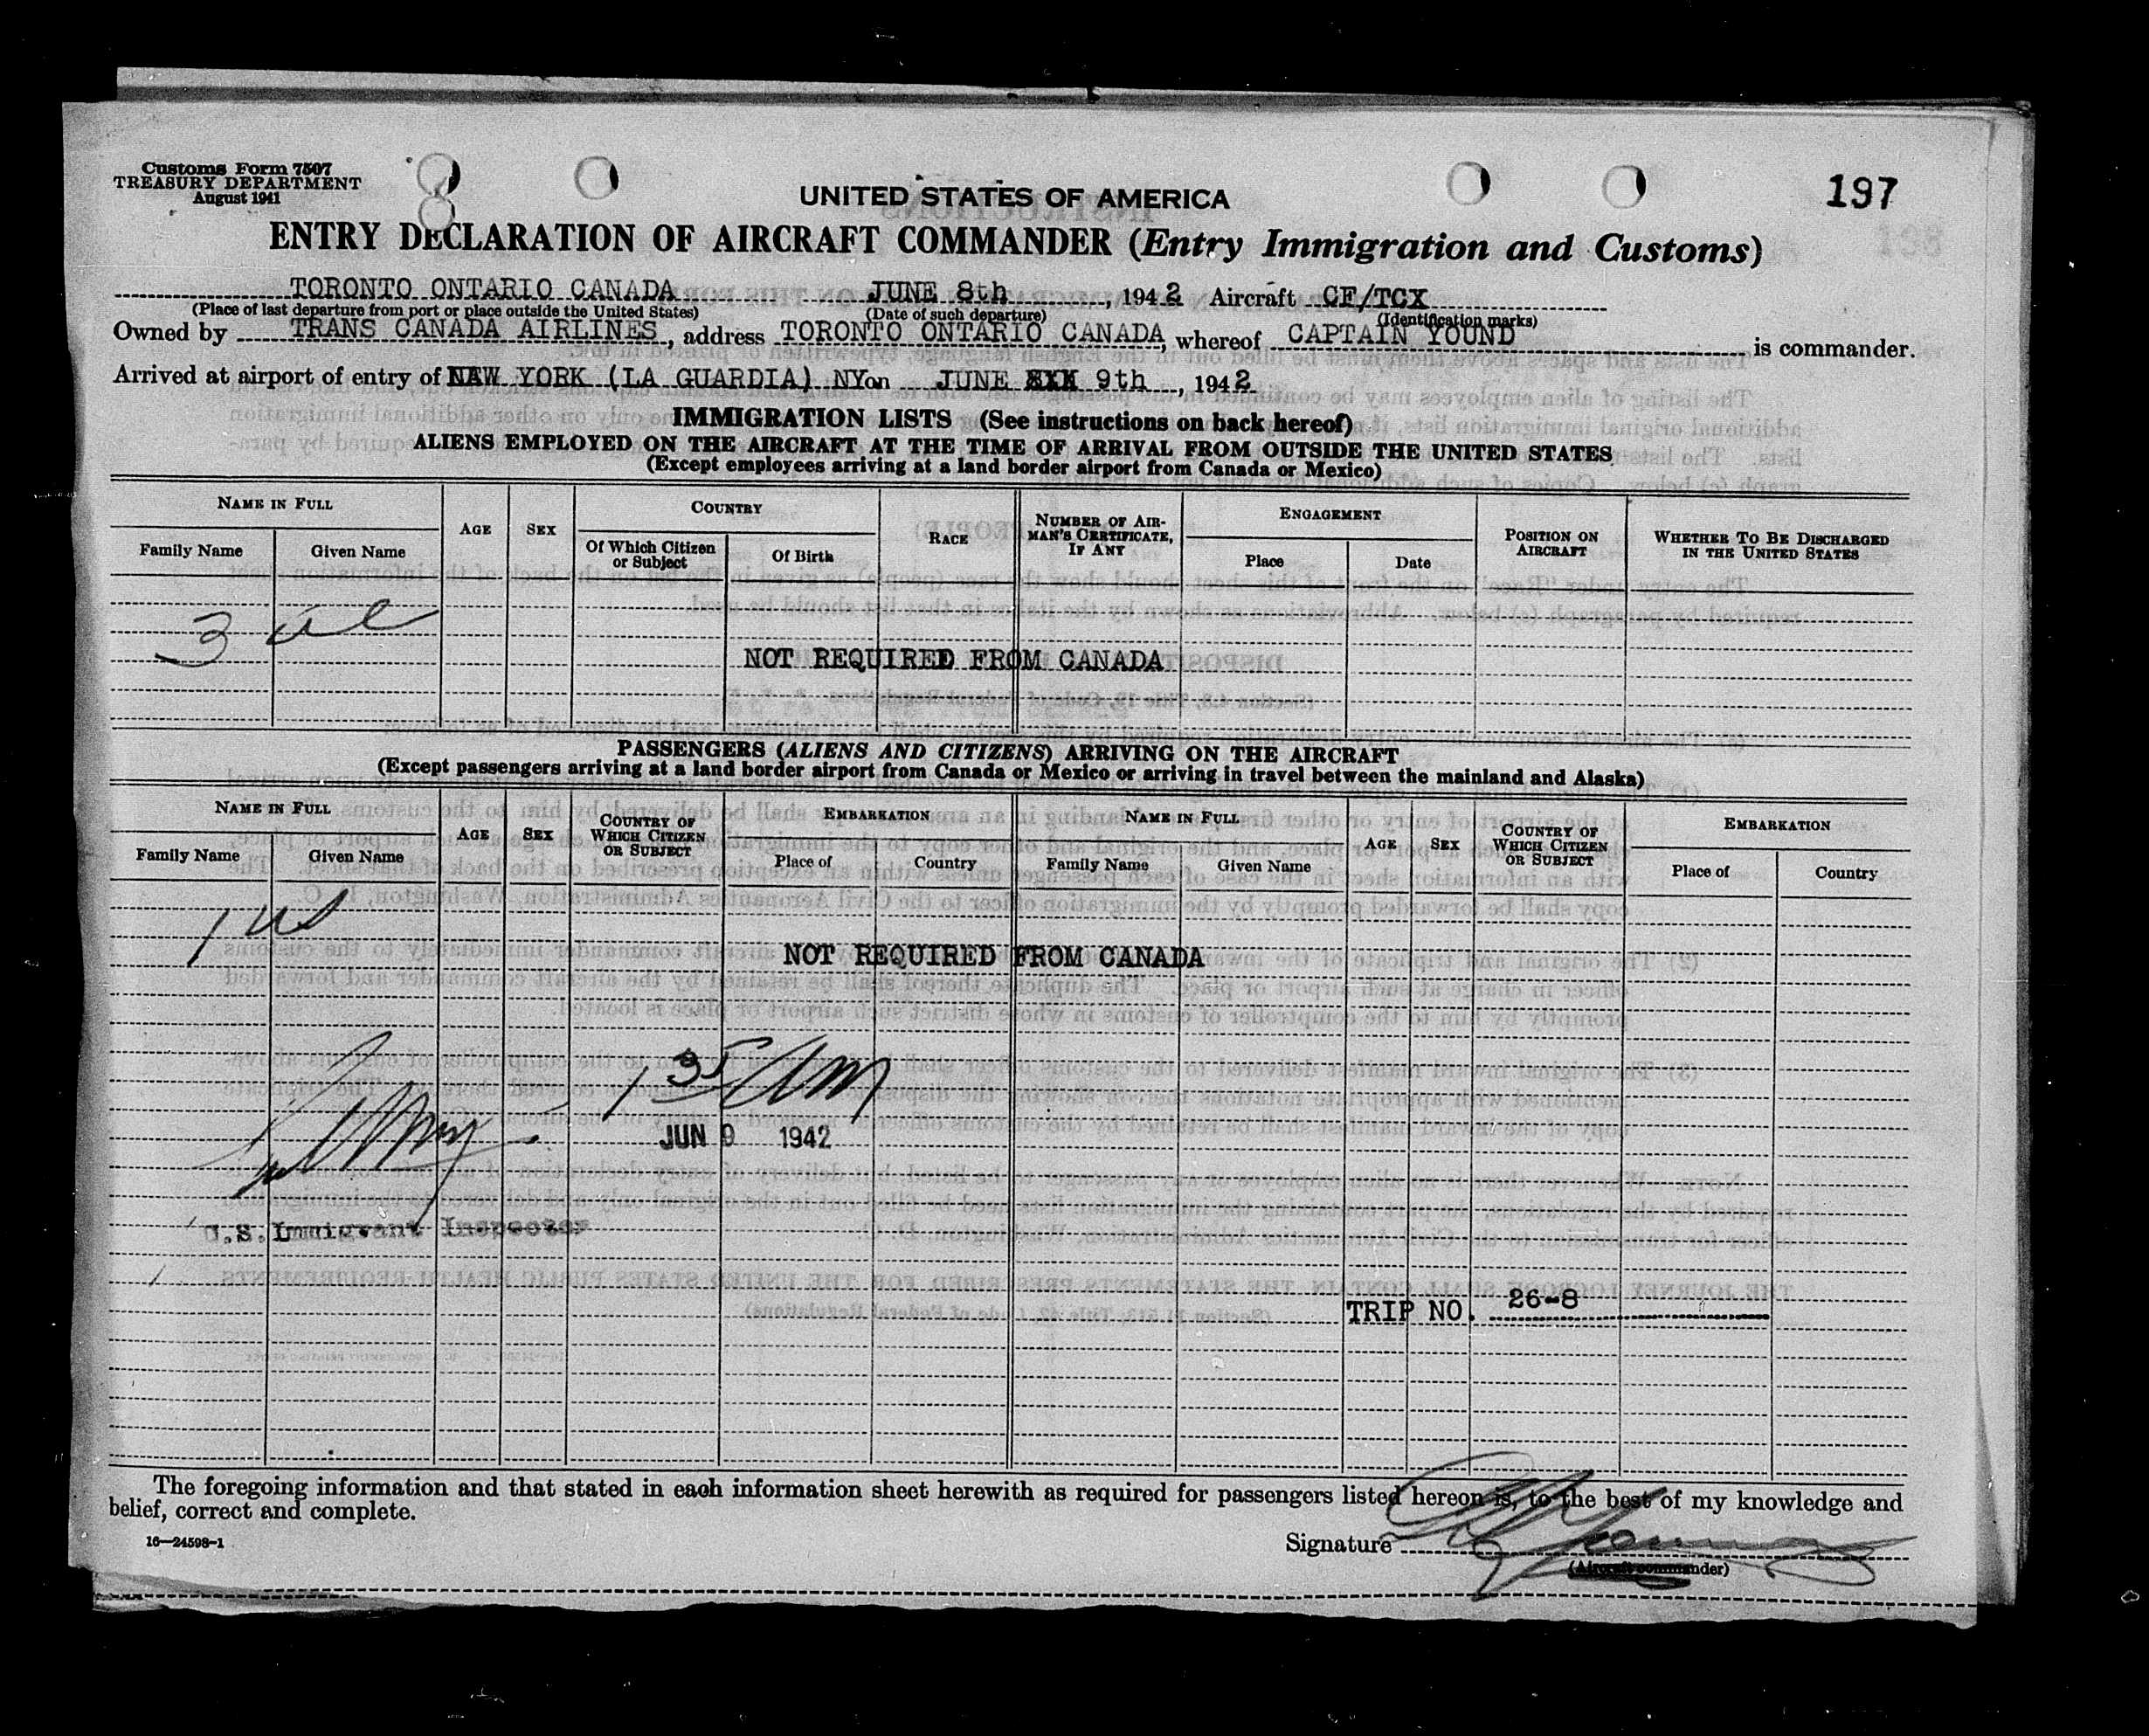 Customs Form 7507
TREASURY DEPARTMENT
August 1941
UNITED STATES OF AMERICA
197
ENTRY DECLARATION OF AIRCRAFT COMMANDER (Entry Immigration and Customs)
TORONTO ONTARIO CANADA JUNE 8th, 1942 Aircraft CF/TCX
(Place of last departure from port or place outside the United States) (Date of such departure) (Identification marks)
Owned by TRANS CANADA AIRLINES, address TORONTO ONTARIO CANADA, whereof CAPTAIN YOUND is commander.
Arrived at airport of entry of NEW YORK (LA GUARDIA) NY on JUNE 9th, 1942
IMMIGRATION LISTS (See instructions on back hereof)
ALIENS EMPLOYED ON THE AIRCRAFT AT THE TIME OF ARRIVAL FROM OUTSIDE THE UNITED STATES
(Except employees arriving at a land border airport from Canada or Mexico)
NAME IN FULL AGE SEX COUNTRY RACE NUMBER OF AIRMAN'S CERTIFICATE, IF ANY ENGAGEMENT POSITION ON AIRCRAFT WHETHER TO BE DISCHARGED IN THE UNITED STATES
Family Name Given Name Of Which Citizen or Subject Of Birth Place Date
3
NOT REQUIRED FROM CANADA
PASSENGERS (ALIENS AND CITIZENS) ARRIVING ON THE AIRCRAFT
(Except passengers arriving at a land border airport from Canada or Mexico or arriving in travel between the mainland and Alaska)
NAME IN FULL AGE SEX COUNTRY OF WHICH CITIZEN OR SUBJECT EMBARKATION NAME IN FULL AGE SEX COUNTRY OF WHICH CITIZEN OR SUBJECT EMBARKATION
Family Name Given Name Place of Country Family Name Given Name Place of Country
1 us
NOT REQUIRED FROM CANADA
1 35 AM
JUN 9 1942
U.S. Immigrant Inspector
TRIP NO. 26-8
The foregoing information and that stated in each information sheet herewith as required for passengers listed hereon is, to the best of my knowledge and
belief, correct and complete.
16—24598-1
Signature
(Aircraft commander)